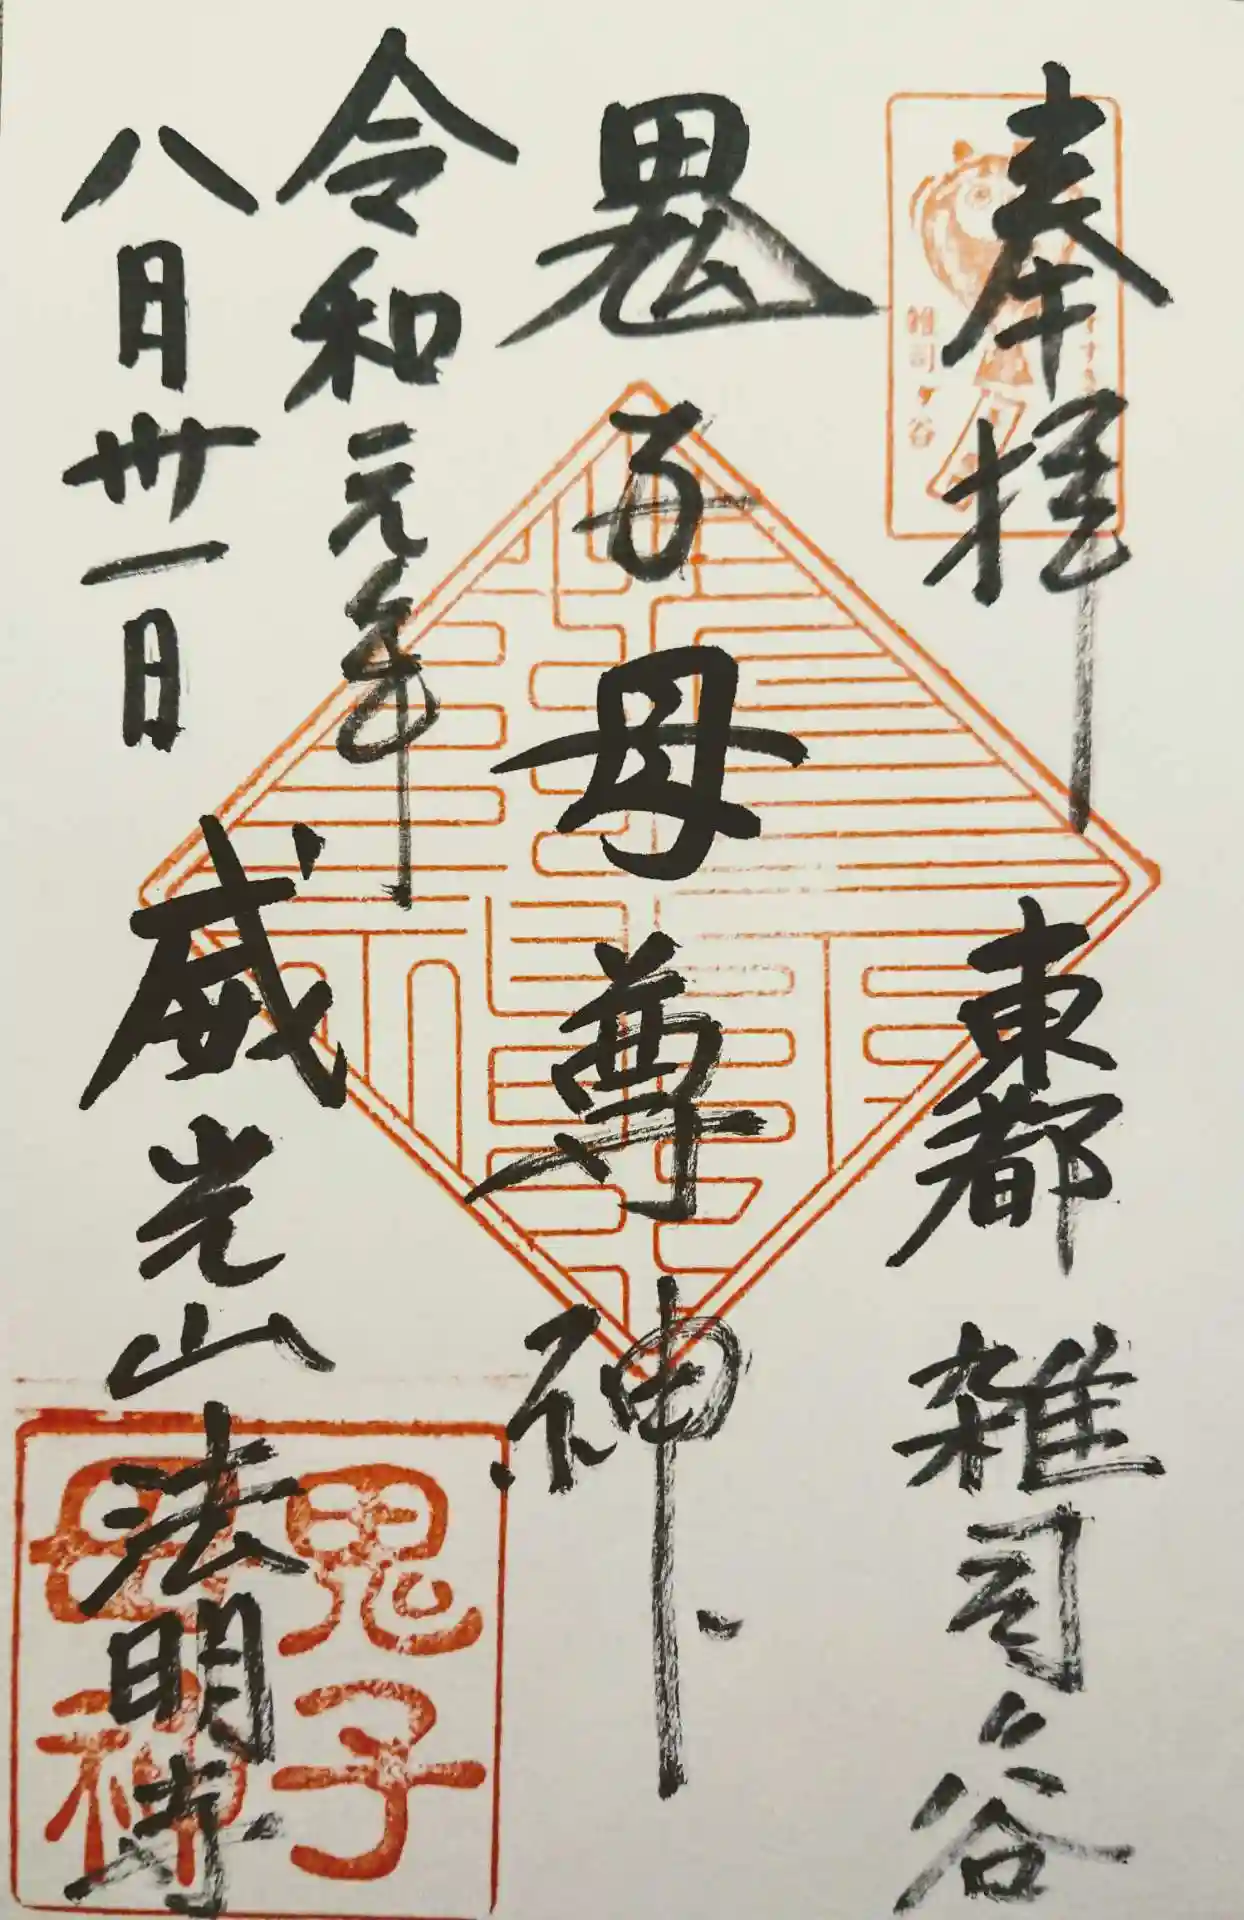 奉拝
東都 雑司ケ谷
鬼子母尊神
令和元年
八月卅一日
威光山 法明寺
雑司ケ谷
鬼子
母神